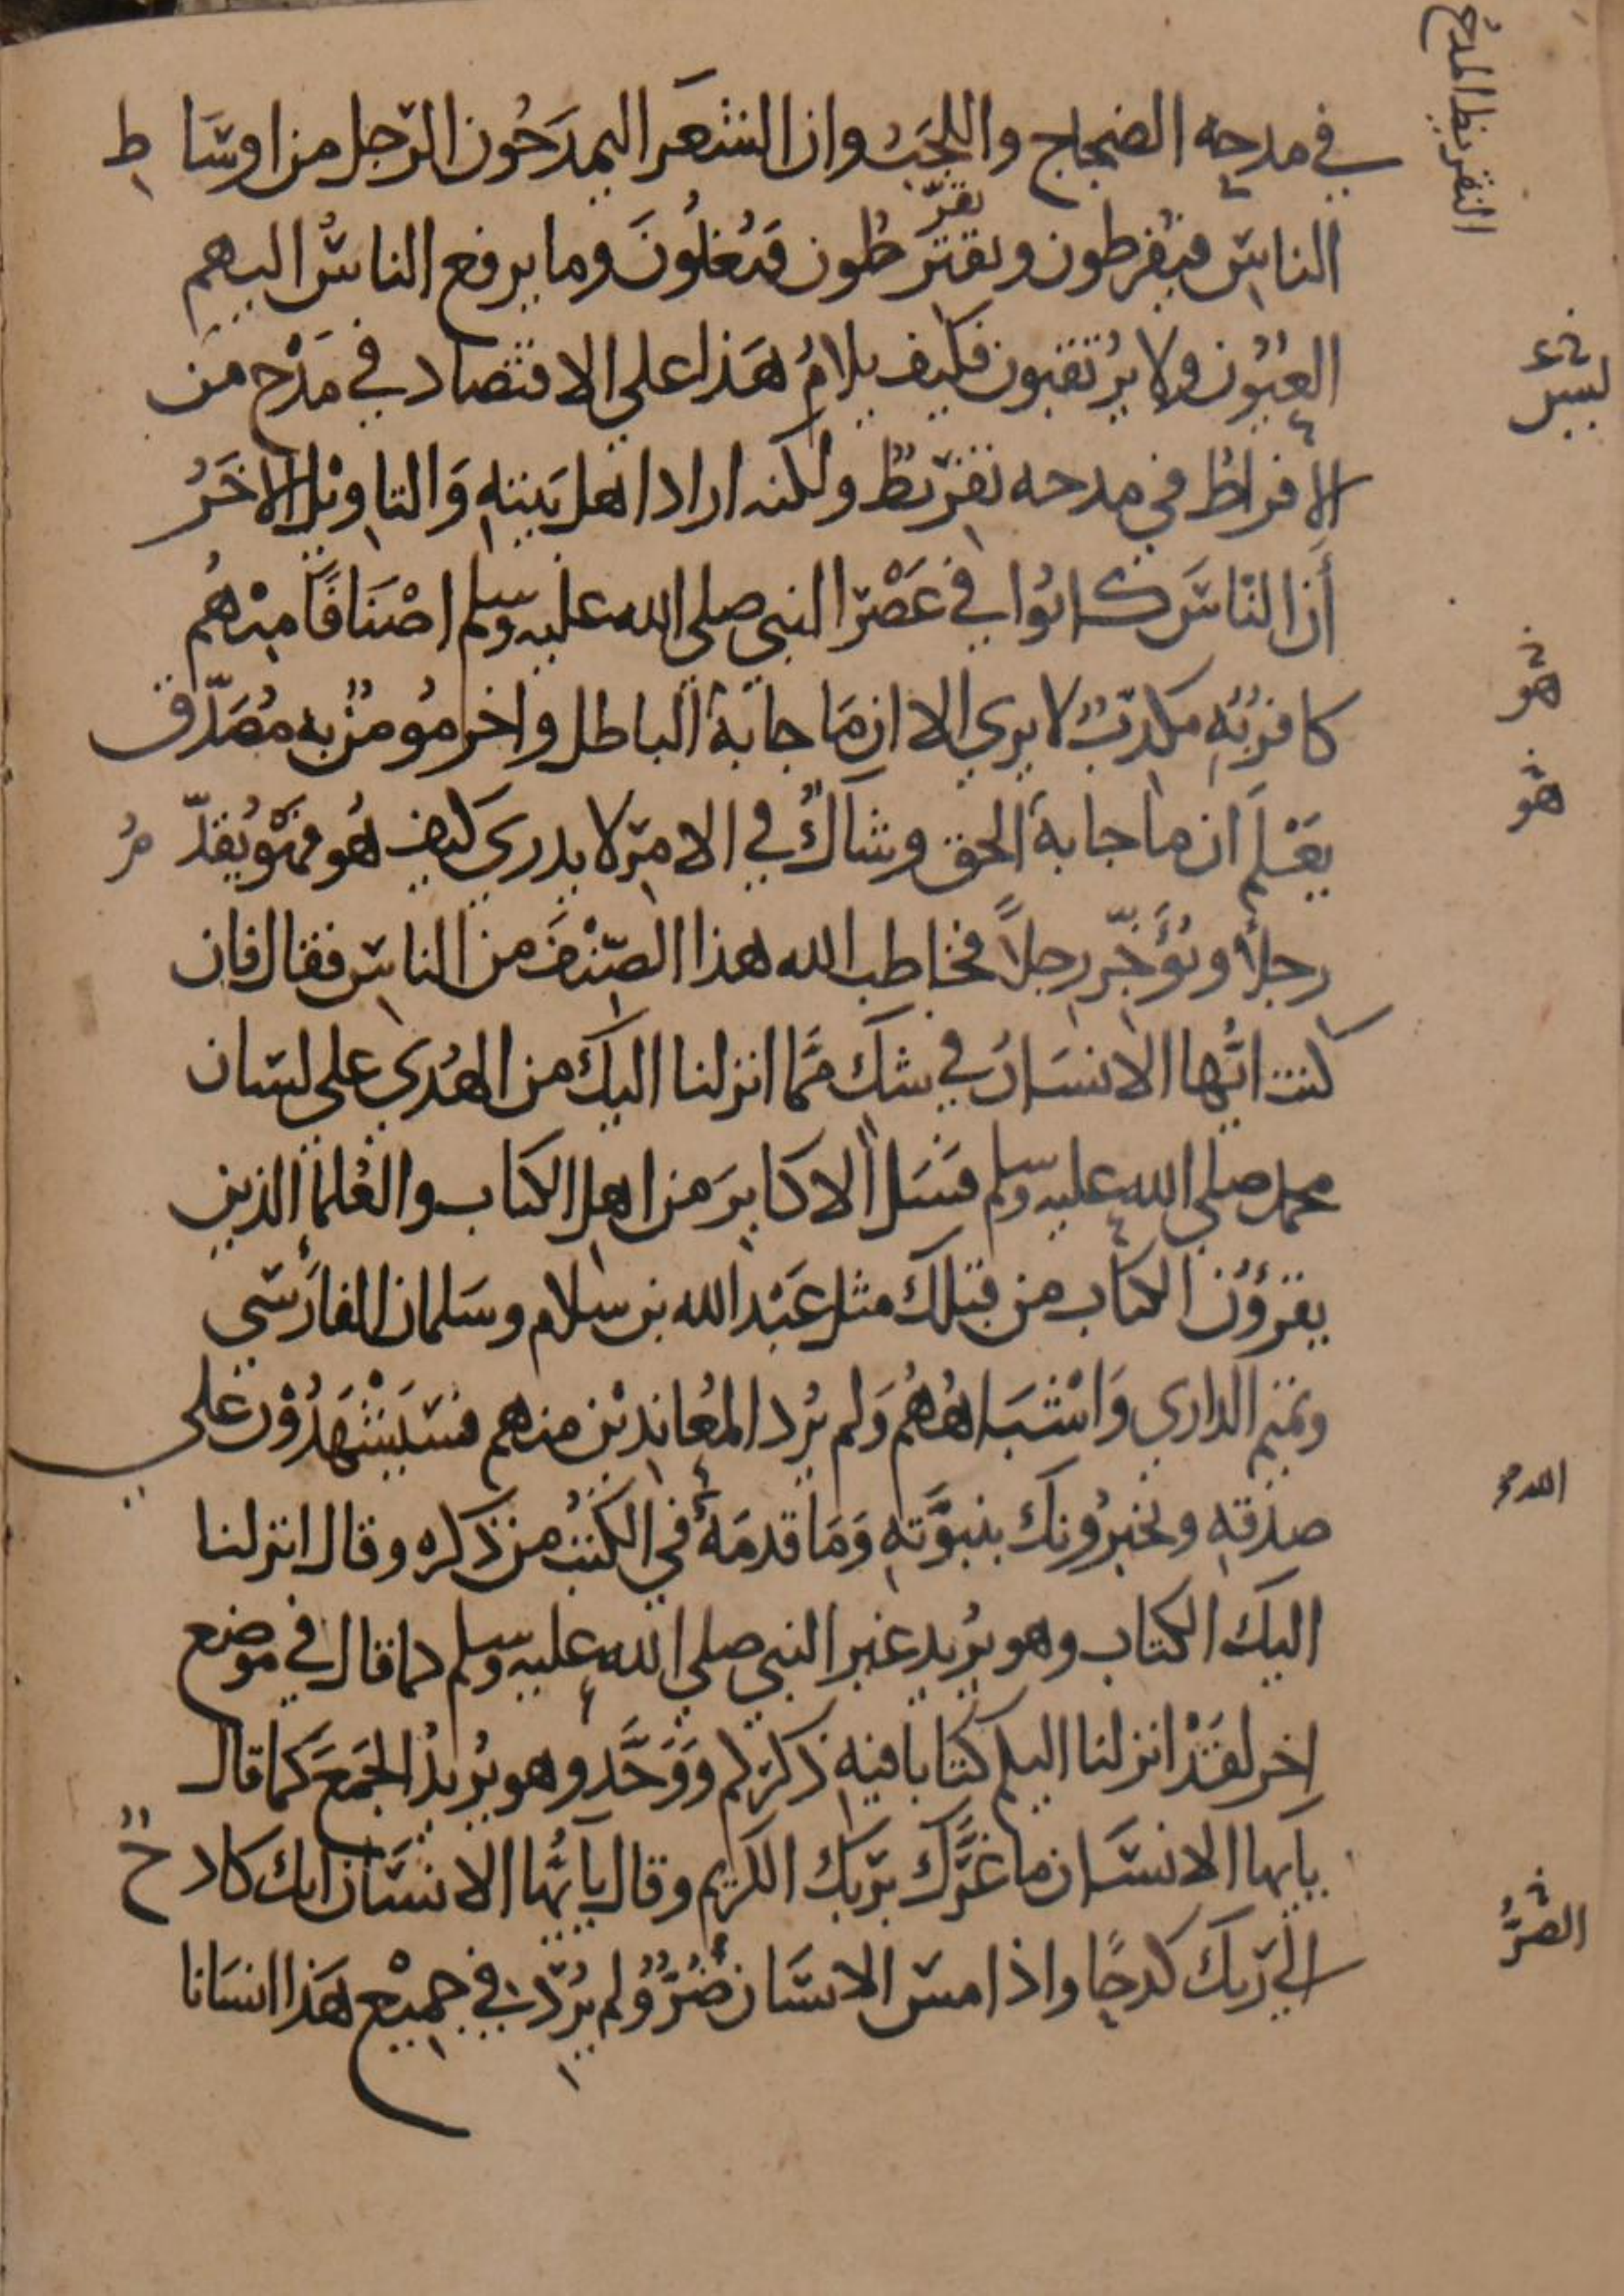 التقريظ المدح
في مدحه الضجاج واللجب وان الشعرا يمدحون الرجل من اوساط
الناس فيفرطون ويقرظون فيغلون وما يرفع الناس اليهم
العيون ولا يرتقبون فكيف يلام هذا على الاقتصاد في مدح من
الافراط في مدحه تقريظ ولكنه اراد اهل بيته والتاويل الاخر
أن الناس كانوا في عصر النبي صلى الله عليه وسلم اصنافا منهم
كافر به مكذب لا يرى الا ان ما جا به الباطل واخر مومن به مصدق
يعلم ان ما جا به الحق وشاك في الامر لا يدري كيف هو فهو يقدم
رجلا ويؤخر رجلا فخاطب الله هذا الصنف من الناس فقال فان
كنت ايها الانسان في شك مما انزلنا اليك من الهدى على لسان
محمد صلى الله عليه وسلم فسل الاكابر من اهل الكتاب والعلما الذين
يقرؤن الكتاب من قبلك مثل عبد الله بن سلام وسلمان الفارسي
وتميم الداري واشباههم ولم يرد المعاندين منهم فسيشهدون على
صدقه ويخبرونك بنبوته وما قدمه في الكتب من ذكره وقال انزلنا
اليك الكتاب وهو يريد غير النبي صلى الله عليه وسلم كما قال في موضع
اخر لقد انزلنا اليكم كتابا فيه ذكركم ووحد وهو يريد الجمع كما قال
يايها الانسان ما غرك بربك الكريم وقال يايها الانسان انك كادح
الى ربك كدحا واذا مس الانسان ضر ولم يرد في جميع هذا انسانا
هو
هو
الله
الضر